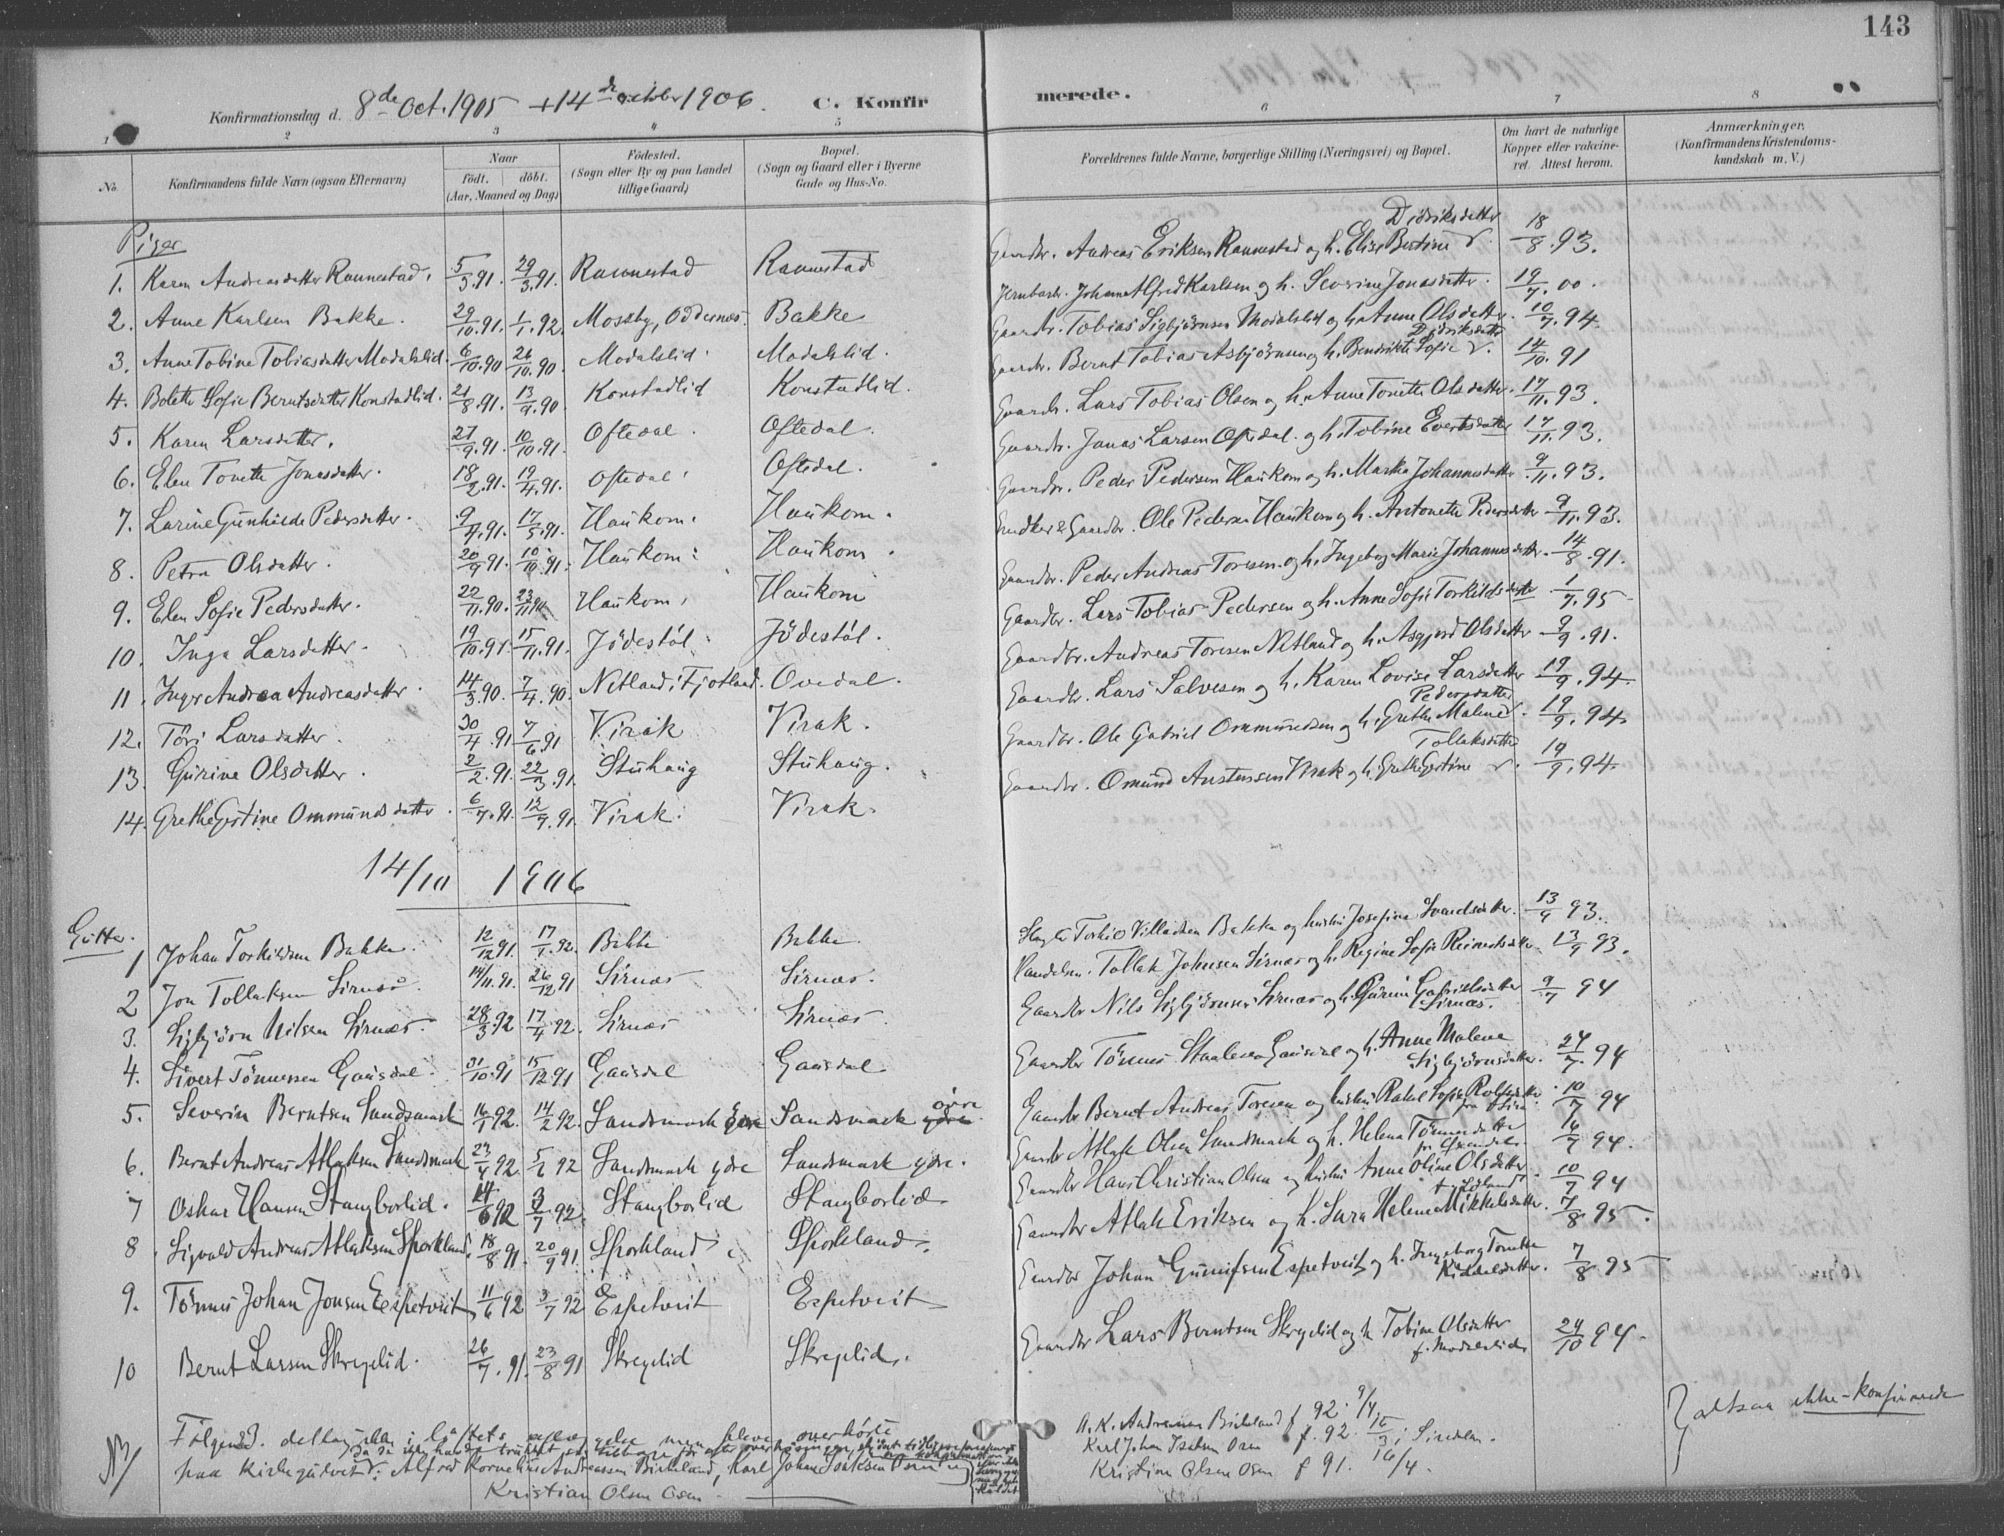 143
Konfirmationsdag d. 8de Oct. 1905 + 14de october 1906. C. Konfirmerede.
1 2 3 4 5 6 7 8
No. Konfirmandens fulde Navn (ogsaa Efternavn) Naar født. døbt. (Aar, Maaned og Dag) Fødested. (Sogn eller By og paa Landet tillige Gaard) Bopæl. (Sogn og Gaard eller i Byerne Gade og Hus-No. Forældrenes fulde Navne, borgerlige Stilling (Næringsvei) og Bopæl. Om havt de naturlige Kopper eller vaccineret. Attest herom. Anmærkninger. (Konfirmandens Kristendomskundskab m. V.)
Piger
1. Karen Andreasdatter Rannestad. 5/3.91. 29/3.91. Rannestad Rannestad Gaardbr. Andreas Eriksen Rannestad og h. Elise Bertine Didriksdatter 18/8.93.
2. Anne Karlsen Bakke. 29/10.91. 1/1.92. Mossby, Oddernes. Bakke Jernbarb. Johan Alfred Karlsen og h. Severine Jonasdatter. 19/7.00.
3. Anne Tobine Tobiasdatter Modalslid. 6/10.90 26/10.90. Modalslid. Modalslid. Gaardbr. Tobias Sigbjörnsen Modalslid og h. Anne Olsdatter. 10/7.94.
4. Bolette Sofie Berntsdatter Konstadlid. 21/8.91. 13/9.90. Konstadlid Konstadlid. Gaardbr. Bernt Tobias Asbjörnsen og h. Bendikte Sofie Didriksdatter. 14/10.91
5. Karen Larsdatter. 27/9.91. 10/10.91. Oftedal. Oftedal. Gaardbr. Lars Tobias Olsen og h. Anne Tonette Olsdatter. 17/11.93.
6. Elen Tonette Jonasdatter. 18/2.91. 19/4.91. Oftedal. Oftedal. Gaardbr. Jonas Larsen Oftedal. og h. Tobine Evertsdatter 17/11.93.
7. Larine Gunhilde Pedersdatter. 9/4.91. 17/5.91. Haukom. Haukom. Gaardbr. Peder Pedersen Haukom og h. Martha Johannesdatter 9/11.93.
8. Petra Olsdatter. 20/9.91. 10/10.91. Haukom. Haukom. & Gaardbr. Ole Pedersen Haukom og h. Antonette Pedersdatter 9/11.93.
9. Elen Sofie Pedersdatter. 22/11.90. 23/11.90 Haukom. Haukom Gaardbr. Peder Andreas Toresen og h. Ingeborg Marie Johannesdatter. 14/8.91.
10. Inga Larsdatter. 19/10.91. 15/11.91. Jödestöl. Jödestöl. Gaardbr. Lars Tobias Pedersen og h. Anne Sofie Torkildsdatter 1/7.95
11. Inger Andrea Andreasdatter. 14/3.90. 7/4.90. Netland i Fjotland. Ovedal. Gaardbr. Andreas Toresen Netland og h. Asgjerd Olsdatter 9/9.91.
12. Töri Larsdatter. 30/4.91 7/6.91 Virak Virak. Gaardbr. Lars Salvesen og h. Karen Lovise Larsdatter 19/9.94.
13. Gurine Olsdatter. 2/2.91. 22/3.91. Stuhaug Stuhaug. Gaardbr. Ole Gabriel Ommundsen og h. Grethe Malene Pedersdatter. 19/9.94.
14. Grethe Gertine Ommundsdatter. 6/7.91. 12/7.91. Virak. Virak. Gaardbr. Omund Austensen Virak og h. Grethe Gertine Tollaksdatter. 19/9.94.
14/10 1906
Gutter.
1 Johan Torkildsen Bakke. 12/12 91. 17/1.92. Bakke Bakke. Torkild Villadsen Bakke og hustru Josefine Svendsdatter. 13/9 93.
2 Jon Tollaksen Sirnæs. 14/11.91. 26/12 91 Sirnæs Sirnæs. Tollak Johnsen Sirnæs og h. Regine Sofie Reinertsdatter. 13/9 93.
3. Sigbjörn Nilsen Sirnæs. 28/3.92. 17/4.92. Sirnæs Sirnæs. Gaardbr Nils Sigbjörnsen Sirnæs og h. Gurine Gabrielsdatter Sirnæs. 9/7 94
4. Sivert Tönnessen Gausdal. 31/10.91 15/12 91 Gausdal Gausdal Gaardbr Tönnes Staalesen Gausdal og h. Anne Malene Sigbjörnsdatter. 27/7.94
5. Severin Berntsen Sandsmark 16/1 92. 14/2 92. Sandsmark övre Sandsmark övre Gaardbr Bernt Andreas Toresen og hustru Rakel Sofie Rolfsdatter fra Sira 10/7 94
6. Bernt Andreas Atlaksen Sandsmark 23/4 92 5/6 92 Sandsmark ydre Sandsmark ydre. Gaardbr Atlak Olsen Sandsmark og h. Helena Tönnesdatter 16/7 94.
7 Oskar Hansen Stangborlid. 14/6 92 3/7 92. Stangborlid Stangborlid Gaardbr Hans Christian Olsen og hustru Anne Oline Olsdatter 10/7 94
8. Sigvald Andreas Atlaksen Sporkland. 18/8 91. 20/9 91. Sporkland. Sporkland. Gaardbr Atlak Eriksen og h. Sara Helene Mikkelsdatter. 7/8 95.
9. Tönnes Johan Jonsen Espetveit 11/6 92 3/7 92 Espetveit Espetveit Gaardbr Johan Gunufsen Espetveit og h. Ingeborg Tonette Kiddelsdatter. 7/8 95
10 Bernt Larsen Skregelid. 26/7.91. 23/8 91 Skregelid Skregelid. Gaardbr Lars Berntsen Skregelid og h Tobine Olsdatter f. Modalslid 24/10 94.
NB/ Følgende deltog ikke i Løftets aflæggelse men bleve overhørte
paa Kirkegulvet: Alfred Kornelius Andreassen Birkeland, Karl Johan Isaksen Osen og
Kristian Olsen Osen.
A. K. Andreassen Birkeland f 92. 9/4
Karl Johan Isaksen Osen f. 92. 15/3 i Sirdalen.
Kristian Olsen Osen f 91. 16/4.
altsaa ikke-konfirmerede